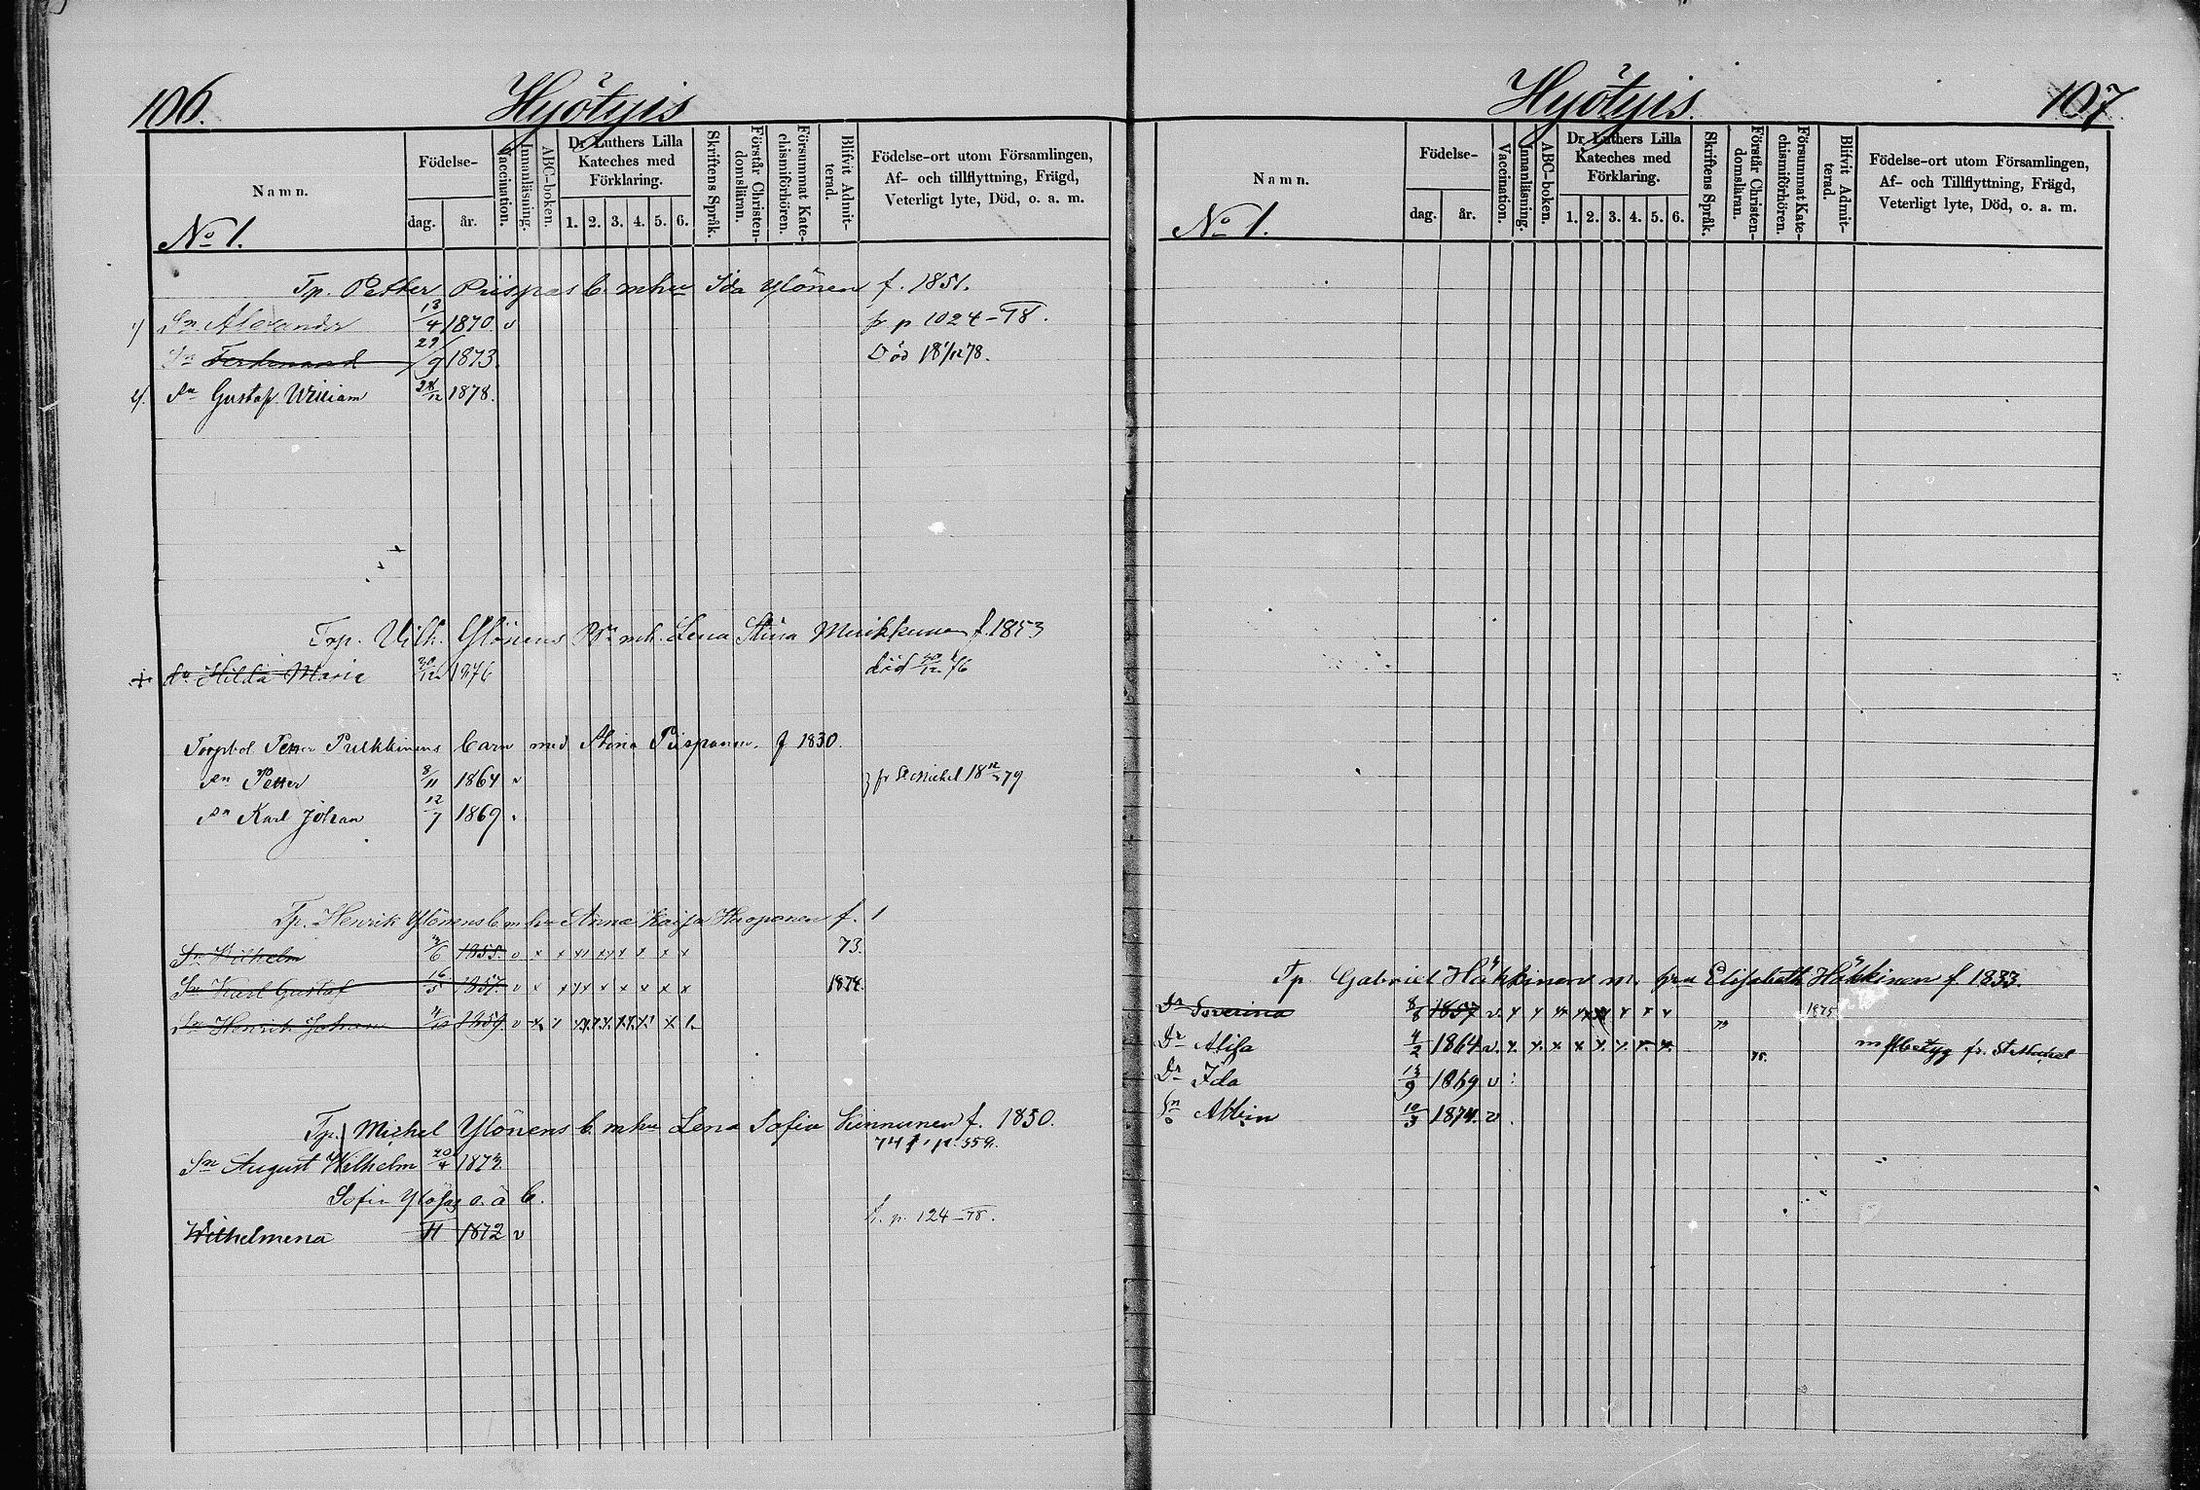 106.
Hyötyis
Namn.
Födelse-
dag.
år.
Vaccination.
Innanläsning.
ABC-boken.
Dr Luthers Lilla
Kateches med
Förklaring.
1. 2. 3. 4. 5. 6.
Skriftens Språk.
Förstår Christen-
domsläran.
Försummat Kate-
chismiförhören.
Blifvit Admit-
terad.
Födelse-ort utom Församlingen,
Af- och tillflyttning, Frägd,
Veterligt lyte, Död, o. a. m.
No 1.
Tp. Petter Piispas b. m hu Ida Ylönen f. 1851.
1) Sn Alexander 13/4 1870. v fr p 1024-78.
Sn Ferdinand 29/9 1873. Död 18 1/12 78.
2). Sn Gustaf William 28/12 1878.
Trp. Vilh. Ylönens Lena Stina f. 1853
Hilda Maria 1876 död 76
Petter Pulkkinens barn med Stina Piispanen. f 1830.
Sn Petter 8/11 1864 v } fr St Michel 18 79
Sn Karl Johan 12/7 1869
Tp. Henrik Ylönens b m hu Anna Kaisa f. 1
Sn Wilhelm 1855. v x x x x x x x x 73.
Sn Karl Gustaf 16/5 1857. v x x x x x x x x 1874.
Sn Henrik Johan 1859. v x
Tp. Michel Ylönens b. m hu Lena Sofia Kinnunen f. 1850.
Sn August Wilhelm 20/4 1873.
Sofia o. ä b.
Wilhelmena 11 1872 v p. 124-78.
107.
Hyötyis.
Namn.
Födelse-
dag.
år.
Vaccination.
Innanläsning.
ABC-boken.
Dr Luthers Lilla
Kateches med
Förklaring.
1. 2. 3. 4. 5. 6.
Skriftens Språk.
Förstår Christen-
domsläran.
Försummat Kate-
chismiförhören.
Blifvit Admit-
terad.
Födelse-ort utom Församlingen,
Af- och Tillflyttning, Frägd,
Veterligt lyte, Död, o. a. m.
No 1.
Tp. Gabriel Häkkinens m. hu Elisabeth Häkkinen f. 1833.
Dr Severina 8/8 1857 v. x x x x x x x x 1875
Dr Alisa 4/2 1864 v. x. x. x x x. x. x. x. fr. St Michel
Dr Ida 13/9 1869 v
Sn Albin 10/3 1874. v